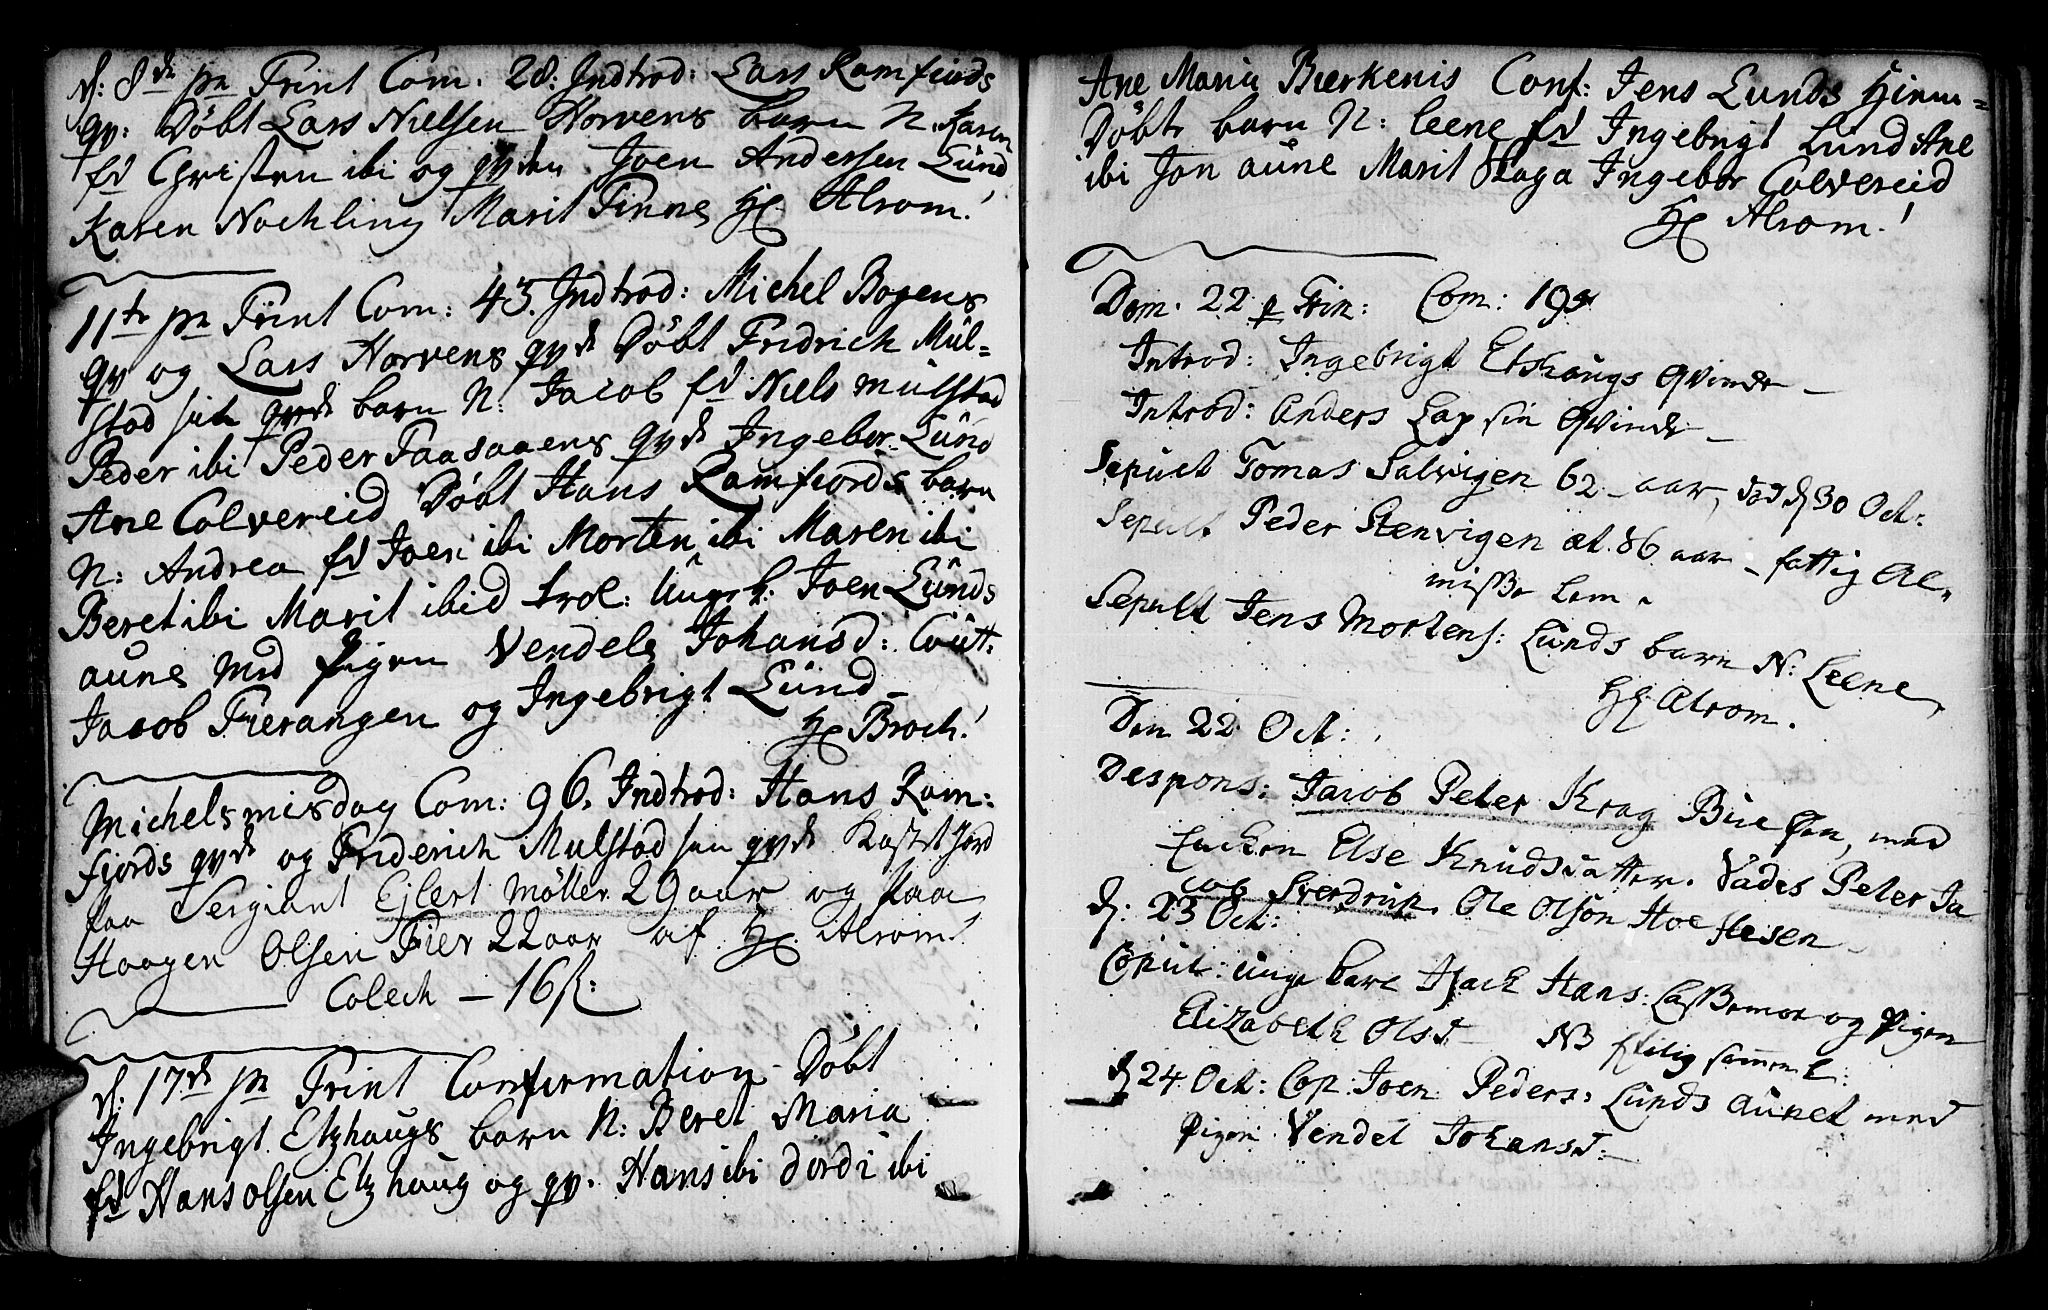 d: 8de pn Trint Com. 28: Indtrod: Lars Ramfiords
qv: Döbt Lars Nielsen Horvens barn N. Karen
fd Christen ibi og qvden Joen Andersen Lund
Karen Nochling Marit Finnes Hr Alrom!
11te pn Trint Com: 43. Indtrod: Michel Bogens
qv og Lars Horvens qvde Döbt Fridrich Mül-
stad sin qvde barn N: Jacob fd Niels mulstad
Peder ibi Peder Faasaaens qvde Ingebor Lund
Ane Colvereid Döbt Hans Ramfiords barn
N: Andrea fd Joen ibi Morten ibi Maren ibi
Beret ibi Marit ibid trol: Ungk: Joen Lünds
aune med Pigen Vendele Johansd:
Jacob Fierangen og Ingebrigt Lünd
Hr Broch!
Michelsmisdag Com: 96. Indtrod: Hans Ram:
fjords qvde og Friderich Mulstad sin qvde Kastet Jord
paa Sergiant Ejlert Möller 29 aar og paa
Haagen Olsen Fier 22 aar af Hr Alrom!
Colech - 16 s:
d: 17de pn Trint Confirmation Döbt
Ingebrigt Etzhaugs barn N: Beret Maria
fd Hans Olsen Etzhaug og qv. Hans ibi Dordi ibi
Ane Maria Bierkenis Conf: Jens Lunds Hiem-
Döbte barn N: Leene fd Ingebrigt Lund Ane
ibi Jon aune Marit Skaga Ingebor Colvereid
Hr Alrom!
Dom. 22 p Trin: Com: 19
Introd: Ingebrigt Etshaugs Qvinde
Introd: Anders Lap sin Qvinde
Sepult Tomas Salvigen 62 aar, död d 30 Oct:
Sepult Peder Stenvigen æt. 86 aar - fattig Al-
misse Lem.
Sepult Jens Mortens: Lunds barn N: Leene
Hr Alrom.
Den 22 Oct:
Despons: Jacob Peter Krag Bue, med
Else Knudsdatter. Vades Peter Ja
cob Sverdrup. Ole Olsön Hoeflesen
d: 23 Oct:
Copul: unge karl Isach Hans: Lassemoe og Pigen
Elizabeth Olsd NB flitig samml:
d 24 Oct: Cop: Joen Peders: Lunds Aunet med
Pigen Vendel Johansd: